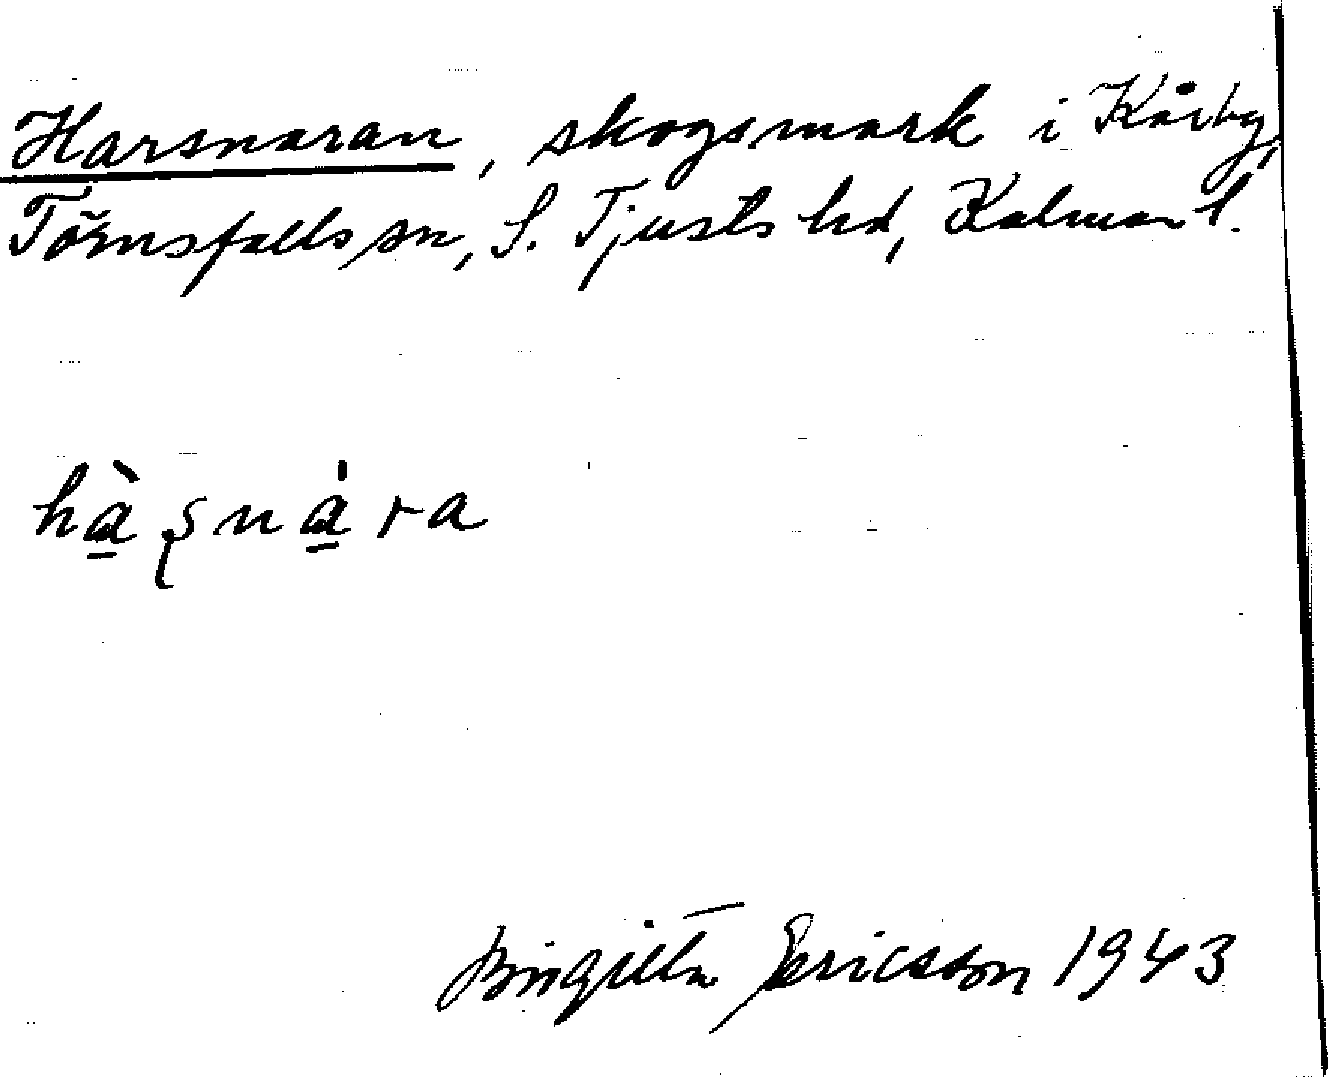 Harsnaran, skogsmark i Kårby,
Törnsfalls sn, S. Tjusts hd, Kalmar l.
hà̱ʂná̱ra
Birgitta Ericsson 1943